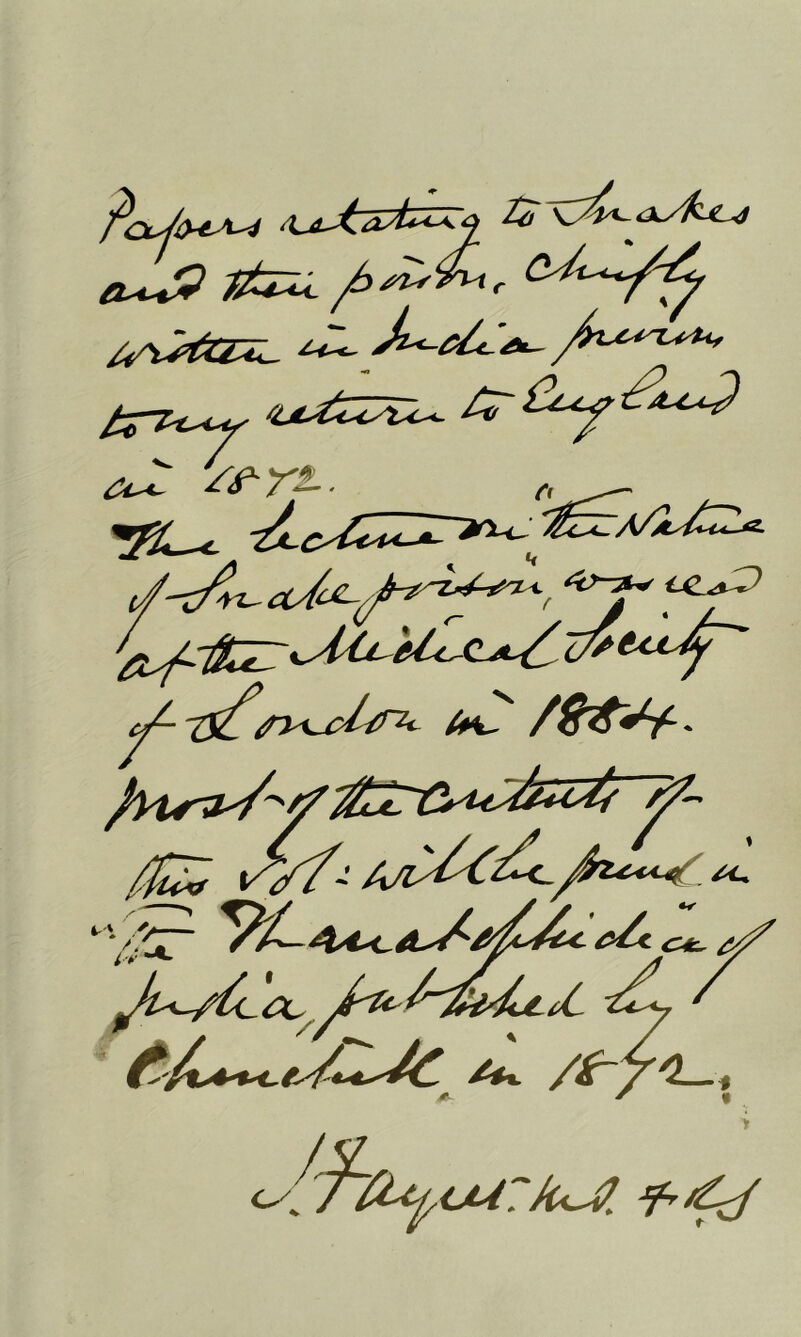 Papers relating to Snakes
and their poison, Chiefly
written in India previous
to my return to England
in 1872.
The lecture on "the Nature
of Snake poison", was read
at the Medical Society
of London in 1884.
Most of the Contents of
this Vol: will be found in
"The Thanatophidia" of
India, published by
Churchill, in 1872.
J. Fayrer. M.D. F.R.S